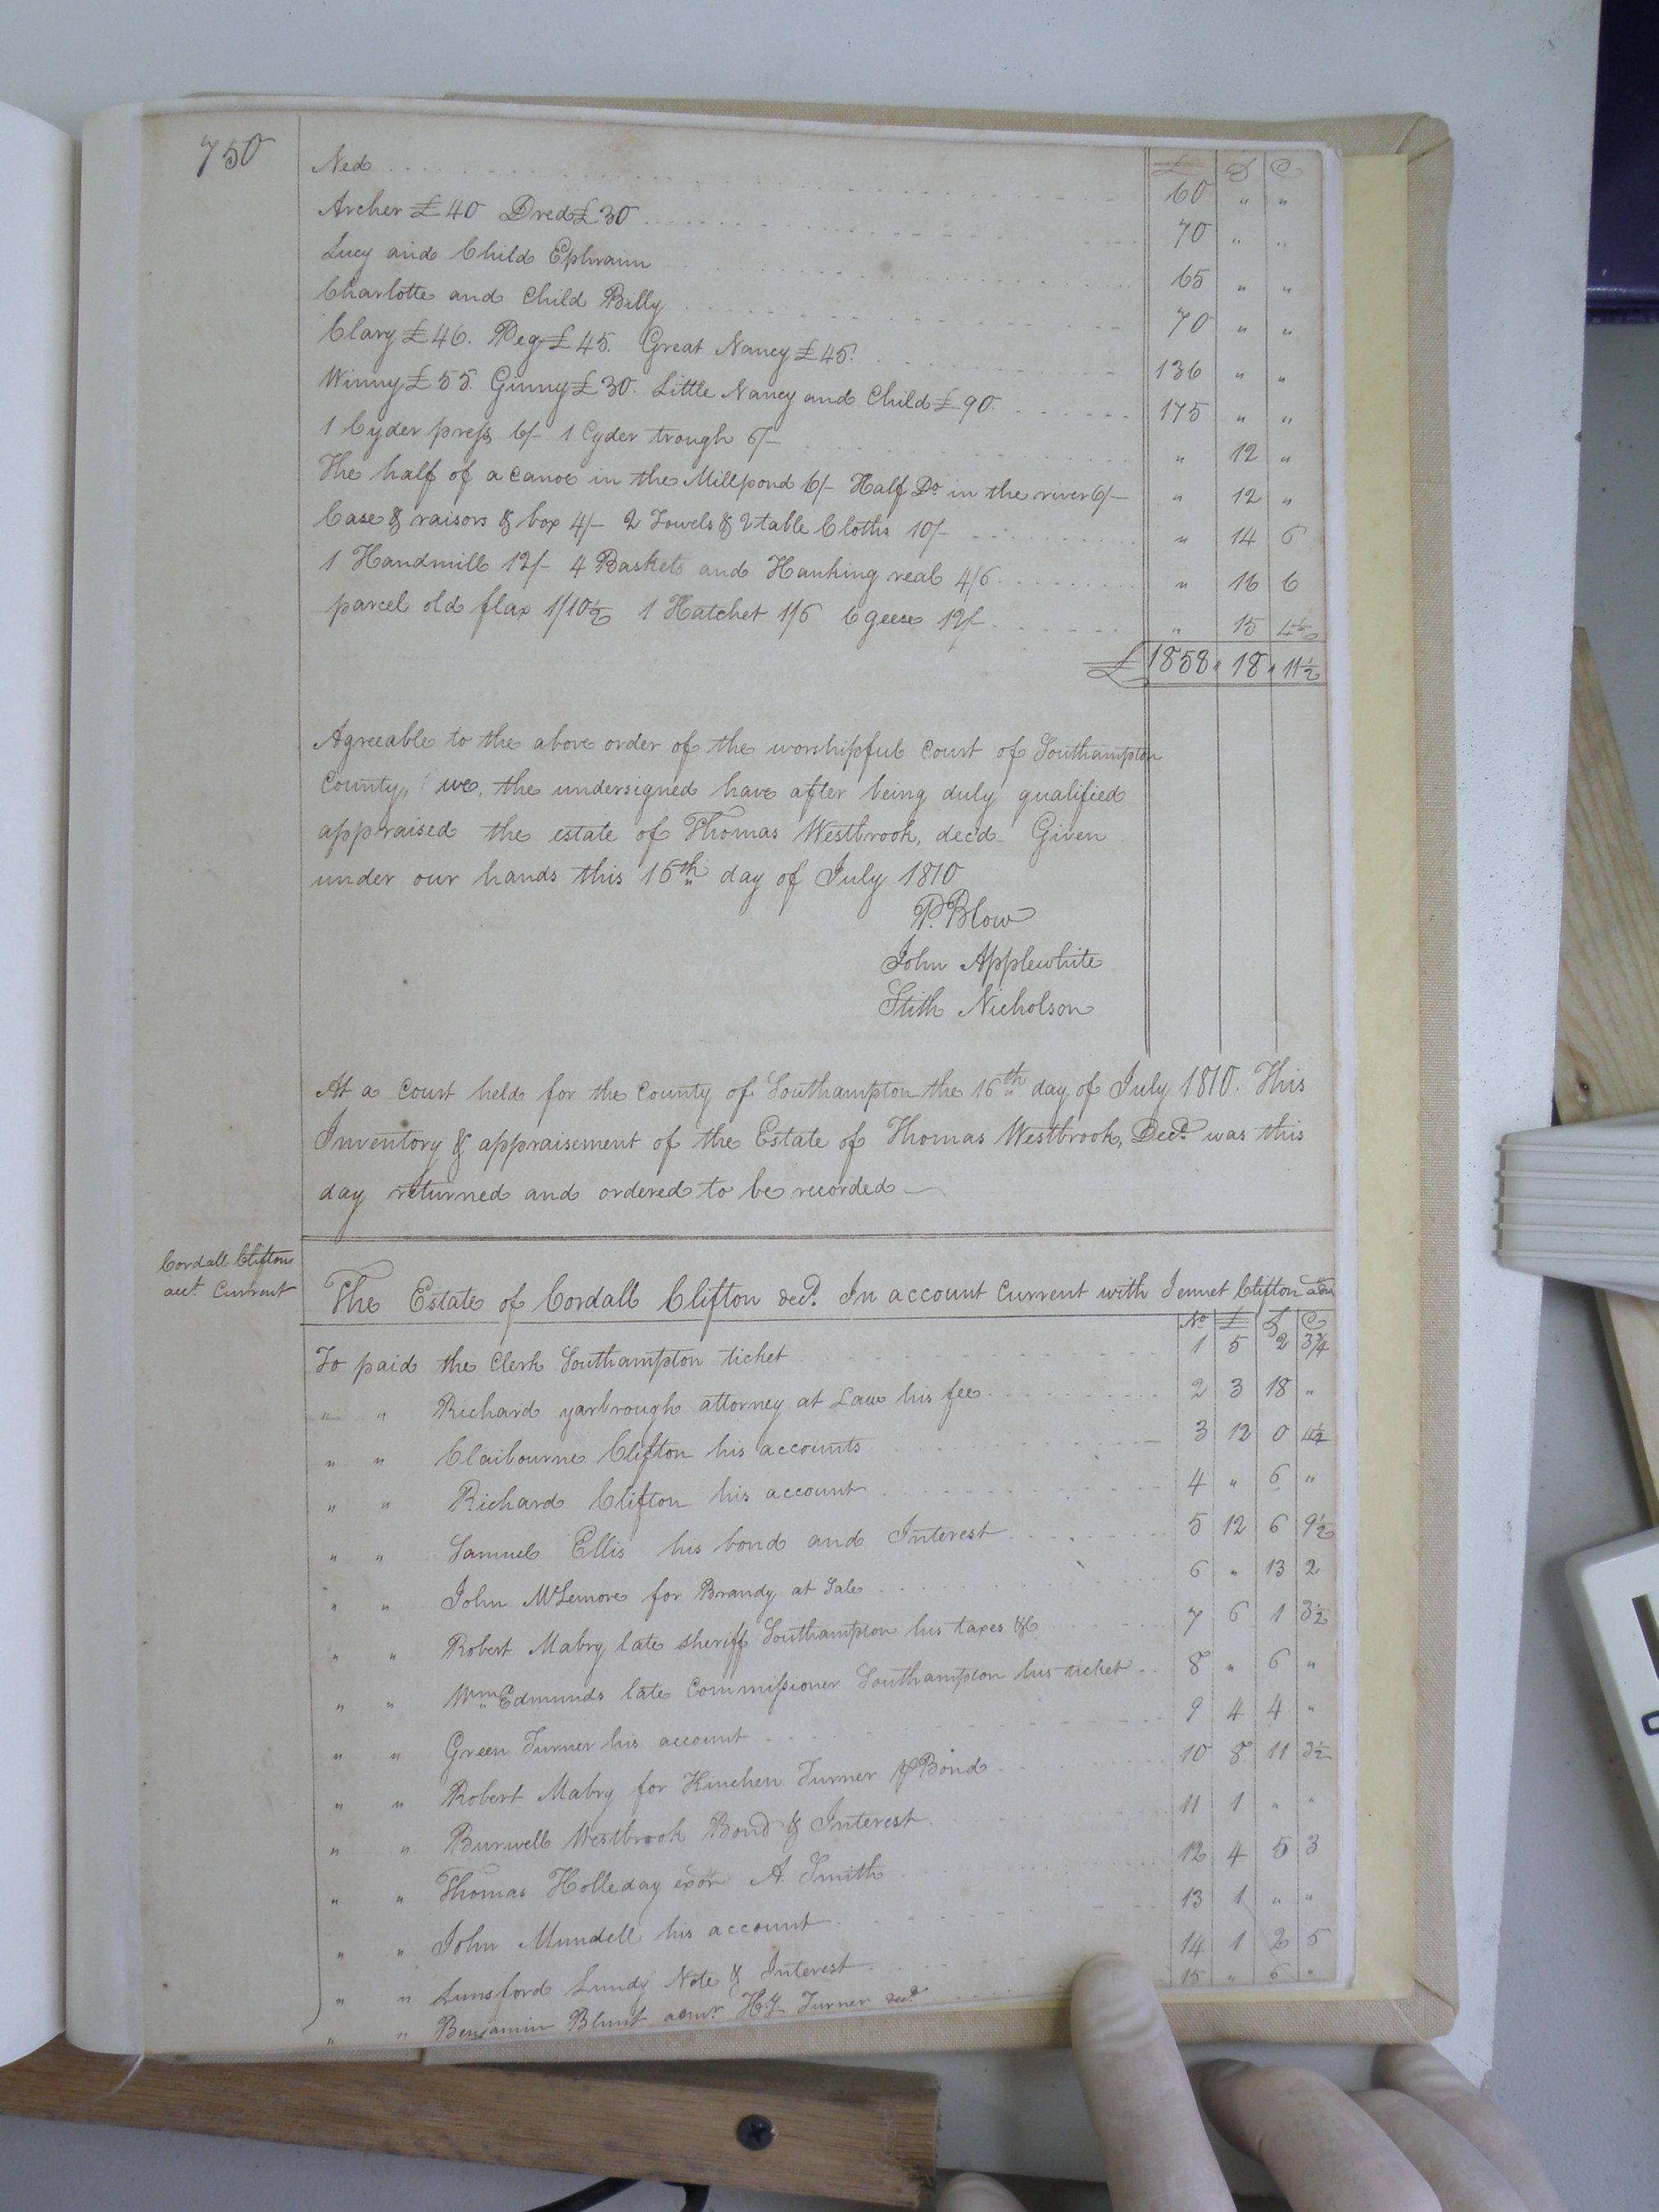 750
£ S D
Ned 60 " "
Archer £40 Dred £30 70 " "
Lucy and Child Ephraim 65 " "
Charlotte and Child Billy 70 " "
Clary £46. Peg £45. Great Nancy £45. 136 " "
Winny £55. Ginny £30. Little Nancy and Child £90. 175 " "
1 Cyder press 6/– 1 Cyder trough 6/– " 12 "
The half of a canoe in the Millpond 6/– Half Do in the river 6/– " 12 "
Case & raisors & box 4/– 2 Towels & 2 table Cloths 10/– " 14 6
1 Handmill 12/– 4 Baskets and Hanking real 4/6 " 16 6
parcel old flax 1/10½ 1 Hatchet 1/6 6 geese 12/– " 15 4½
£ 1858 " 18 " 11½
Agreeable to the above order of the worshipful Court of Southampton
County, we, the undersigned have after being duly qualified
appraised the estate of Thomas Westbrook, decd. Given
under our hands this 16th day of July 1810
P. Blow
John Applewhite
Stith Nicholson
At a Court held for the County of Southampton the 16th day of July 1810. This
Inventory & appraisement of the Estate of Thomas Westbrook, Decd. was this
day returned and ordered to be recorded
Cordall Clifton
acct. Current
The Estate of Cordall Clifton decd. In account Current with Jennet Clifton adm
No £ S D
To paid the Clerk Southampton ticket 1 5 2 3¾
" " Richard yarbrough attorney at Law his fee 2 3 18 "
" " Claibourne Clifton his accounts 3 12 0 4½
" " Richard Clifton his account 4 " 6 "
" " Samuel Ellis his bond and Interest 5 12 6 9½
" " John McLemore for Brandy at Sale 6 " 13 2
" " Robert Mabry late sheriff Southampton his taxes &c 7 6 1 3½
" " Wm Edmunds late Commissioner Southampton his ticket 8 " 6 "
" " Green Turner his account 9 4 4 "
" " Robert Mabry for Hinchen Turner Bond 10 8 11 3½
" " Burwell Westbrook Bond & Interest 11 1 " "
" " Thomas Holleday exor A. Smith 12 4 5 3
" " John Mundell his account 13 1 " "
" " Lunsford Lundy Note & Interest 14 1 2 5
" " Benjamin Blunt admr. Hy Turner decd 15 " 6 "